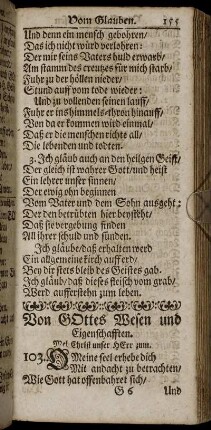 Vom Glauben. 155
Und denn ein mensch gebohren/
Das ich nicht würd verlohren:
Der mir seins Vaters huld erwarb/
Am stamm des creutzes für mich starb/
Fuhr zu der höllen nieder/
Stund auff vom tode wieder:
Und zu vollenden seinen lauff/
Fuhr er ins himmels-thron hinauff/
Von da er kommen wird einmal/
Daß er die menschen richte all/
Die lebenden und todten.
3. Ich gläub auch an den heilgen Geist/
Der gleich ist wahrer Gott/und heist
Ein lehrer unser sinnen/
Der ewig ohn beginnen
Vom Vater und dem Sohn ausgeht:
Der den betrübten hier beysteht/
Daß sie vergebung finden
All ihrer schuld und sünden.
Ich gläube/daß erhalten werd
Ein allgemeine kirch auff erd/
Bey dir stets bleib des Geistes gab.
Ich gläub/daß dieses fleisch vom grab/
Werd aufferstehn zum leben.
Von GOttes Wesen und
Eigenschafften.
Mel. Christ unser HErr zum.
103. O Meine seel erhebe dich
Mit andacht zu betrachten/
Wie Gott hat offenbahret sich/
G 6 Und